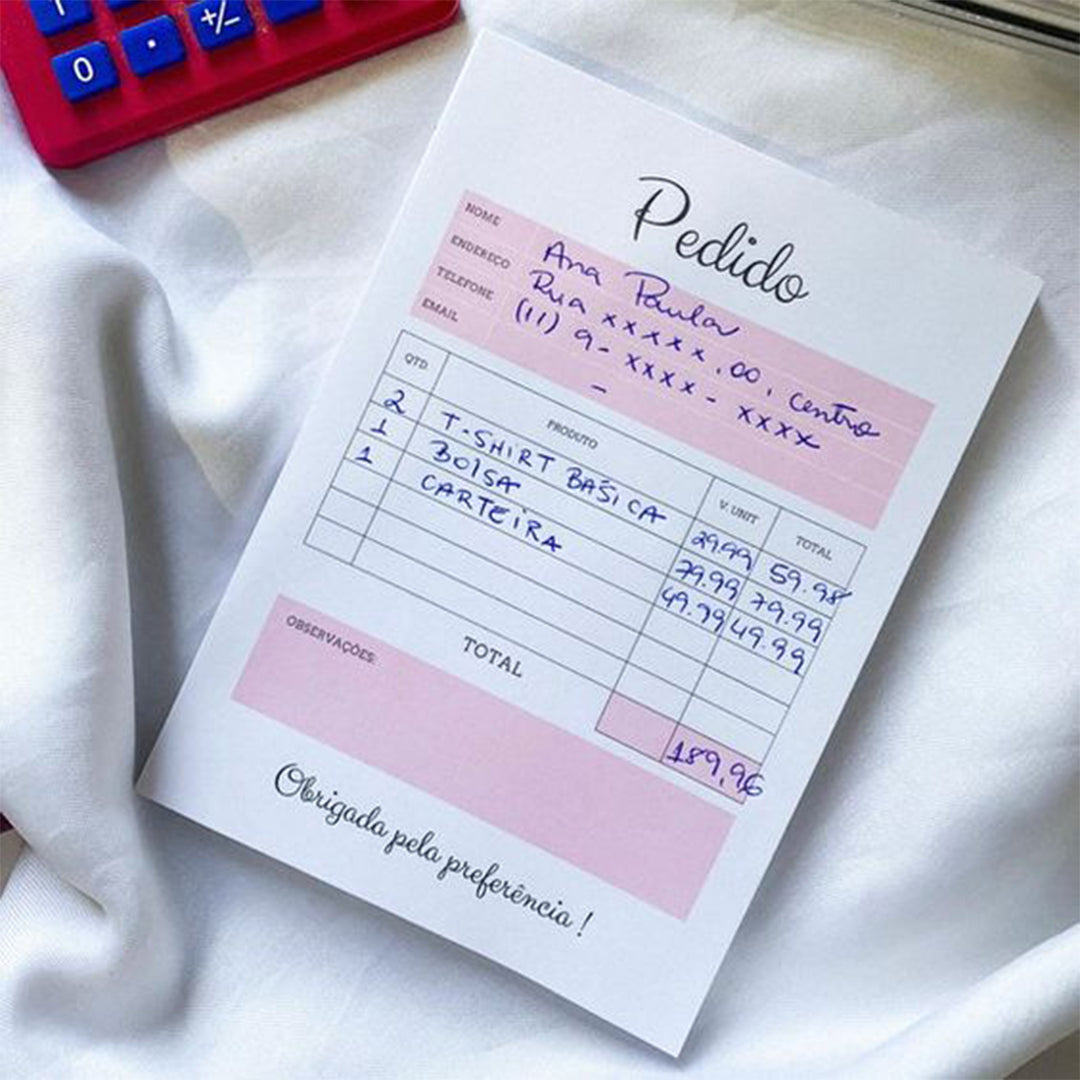 1
0 . +/−
Pedido
NOME Ana Paula
ENDEREÇO Rua xxxxx, 00, Centro
TELEFONE (11) 9-xxxx-xxxx
EMAIL –
QTD PRODUTO V. UNIT TOTAL
2 T-SHIRT BASICA 29.99 59.98
1 BOLSA 79.99 79.99
1 CARTEIRA 49.99 49.99
TOTAL 189,96
OBSERVAÇÕES:
Obrigada pela preferência !